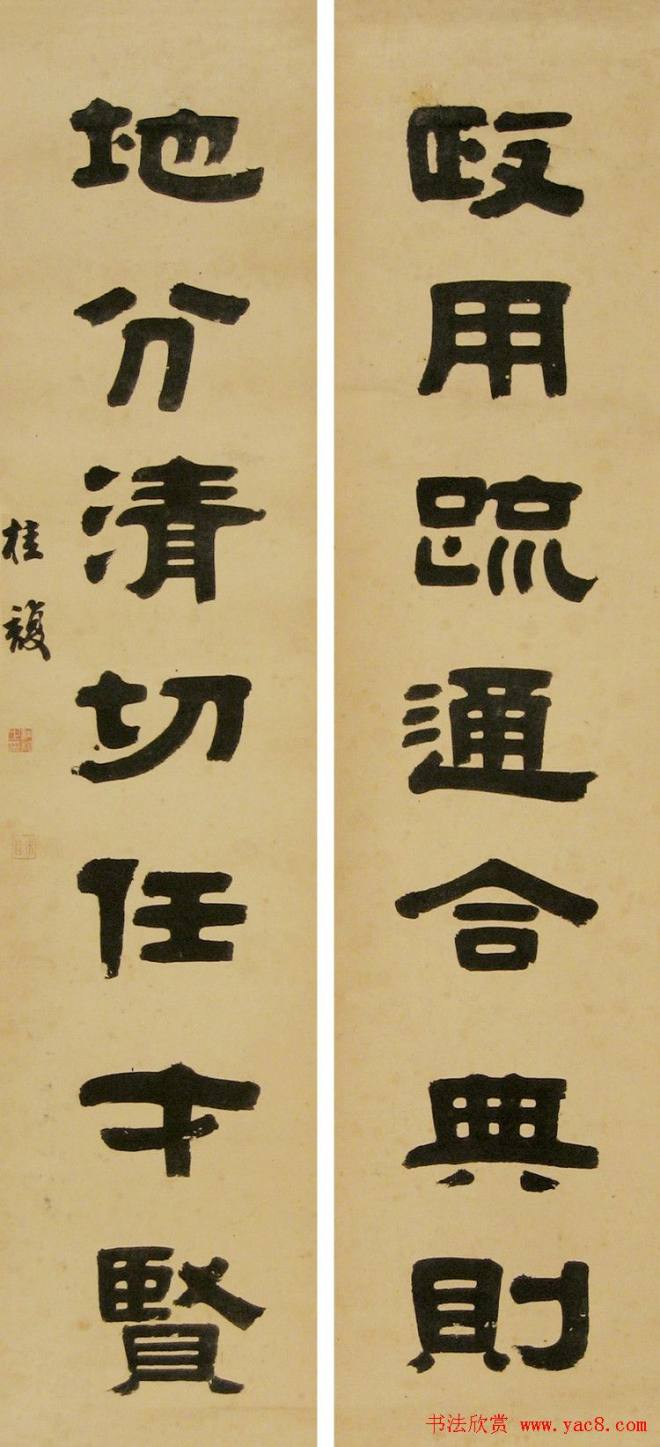 政用疏通合典則
地分清切任才賢
桂馥
书法欣赏 www.yac8.com